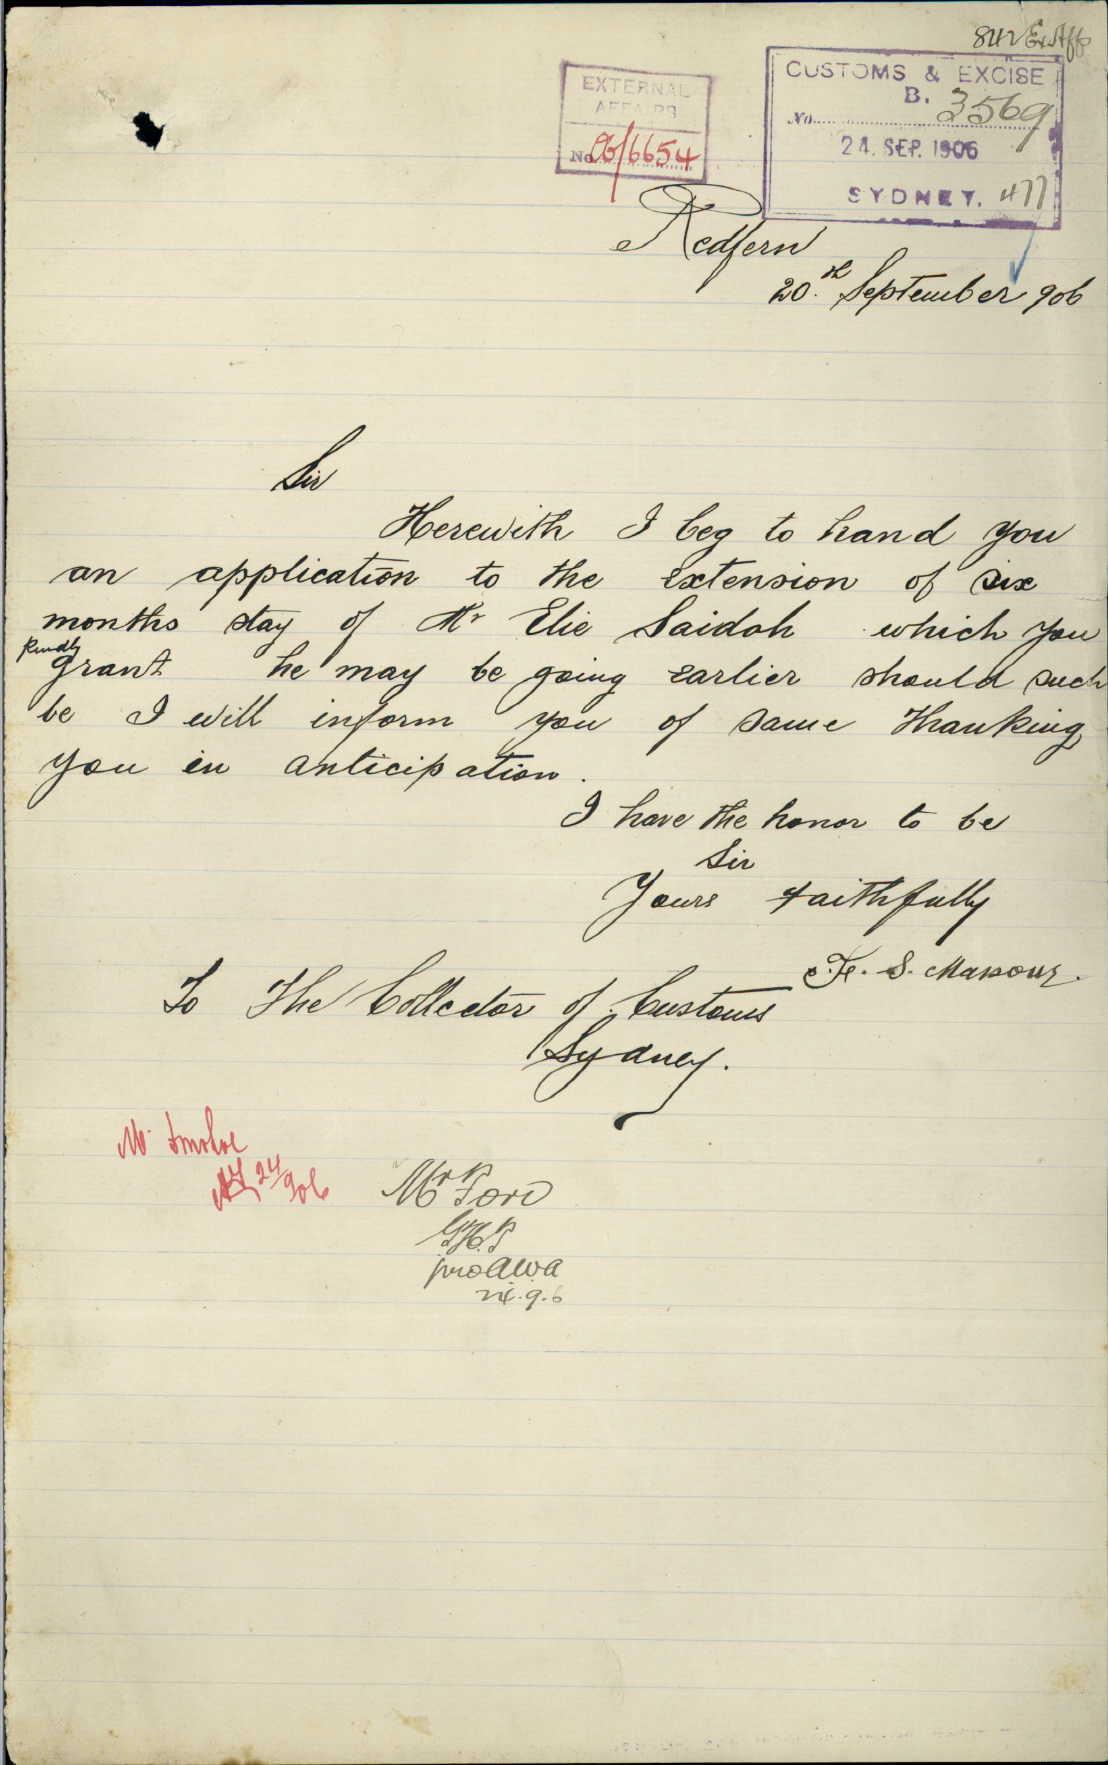 842 Ex Aff
EXTERNAL
AFFAIRS
No. 06/6654
CUSTOMS & EXCISE
B.
No. 3569
24. SEP. 1906
SYDNEY. 477
Redfern
20.th September 906
Sir
Herewith I beg to hand you
an application to the extension of six
months stay of Mr Elie Saidah which you
kindly
grant he may be going earlier should such
be I will inform you of same thanking
you in anticipation.
I have the honor to be
Sir
Yours faithfully
F. S. Mansour.
To The Collector of Customs
Sydney.
Mr
24/906
Mr
pro AWA
24.9.6